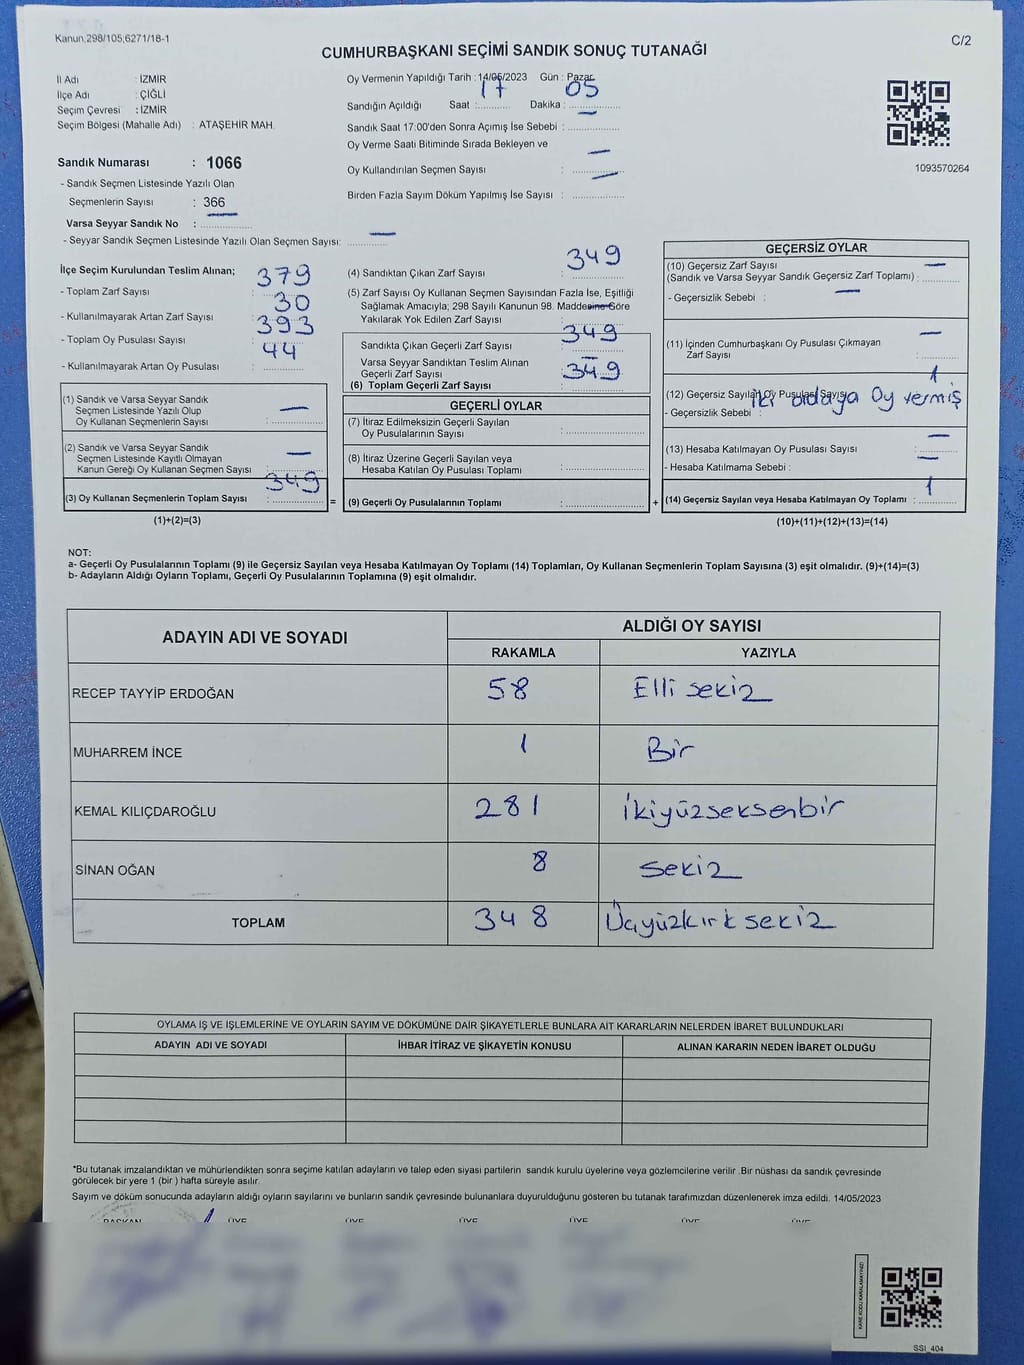 Kanun 298/105,6271/18-1
C/2
CUMHURBAŞKANI SEÇİMİ SANDIK SONUÇ TUTANAĞI
İl Adı : İZMİR
İlçe Adı : ÇİĞLİ
Seçim Çevresi : İZMİR
Seçim Bölgesi (Mahalle Adı) : ATAŞEHİR MAH.
Sandık Numarası : 1066
- Sandık Seçmen Listesinde Yazılı Olan
Seçmenlerin Sayısı : 366
Varsa Seyyar Sandık No : —
- Seyyar Sandık Seçmen Listesinde Yazılı Olan Seçmen Sayısı: —
Oy Vermenin Yapıldığı Tarih : 14/05/2023 Gün : Pazar
Sandığın Açıldığı Saat : 17 Dakika : 05
Sandık Saat 17:00'den Sonra Açımış İse Sebebi : —
Oy Verme Saati Bitiminde Sırada Bekleyen ve
Oy Kullandırılan Seçmen Sayısı : —
Birden Fazla Sayım Döküm Yapılmış İse Sayısı : —
1093570264
İlçe Seçim Kurulundan Teslim Alınan;
- Toplam Zarf Sayısı : 379
- Kullanılmayarak Artan Zarf Sayısı : 30
- Toplam Oy Pusulası Sayısı : 393
- Kullanılmayarak Artan Oy Pusulası : 44
(1) Sandık ve Varsa Seyyar Sandık
Seçmen Listesinde Yazılı Olup
Oy Kullanan Seçmenlerin Sayısı : —
(2) Sandık ve Varsa Seyyar Sandık
Seçmen Listesinde Kayıtlı Olmayan
Kanun Gereği Oy Kullanan Seçmen Sayısı : —
(3) Oy Kullanan Seçmenlerin Toplam Sayısı : 349
(1)+(2)=(3)
(4) Sandıktan Çıkan Zarf Sayısı : 349
(5) Zarf Sayısı Oy Kullanan Seçmen Sayısından Fazla İse, Eşitliği
Sağlamak Amacıyla; 298 Sayılı Kanunun 98. Maddesine Göre
Yakılarak Yok Edilen Zarf Sayısı : —
Sandıkta Çıkan Geçerli Zarf Sayısı : 349
Varsa Seyyar Sandıktan Teslim Alınan
Geçerli Zarf Sayısı : —
(6) Toplam Geçerli Zarf Sayısı : 349
GEÇERLİ OYLAR
(7) İtiraz Edilmeksizin Geçerli Sayılan
Oy Pusulalarının Sayısı :
(8) İtiraz Üzerine Geçerli Sayılan veya
Hesaba Katılan Oy Pusulası Toplamı :
= (9) Geçerli Oy Pusulalarının Toplamı : +
GEÇERSİZ OYLAR
(10) Geçersiz Zarf Sayısı
(Sandık ve Varsa Seyyar Sandık Geçersiz Zarf Toplamı) : —
- Geçersizlik Sebebi : —
(11) İçinden Cumhurbaşkanı Oy Pusulası Çıkmayan
Zarf Sayısı : —
(12) Geçersiz Sayılan Oy Pusulası Sayısı : 1
- Geçersizlik Sebebi : iki adaya Oy vermiş
(13) Hesaba Katılmayan Oy Pusulası Sayısı : —
- Hesaba Katılmama Sebebi : —
(14) Geçersiz Sayılan veya Hesaba Katılmayan Oy Toplamı : 1
(10)+(11)+(12)+(13)=(14)
NOT:
a- Geçerli Oy Pusulalarının Toplamı (9) ile Geçersiz Sayılan veya Hesaba Katılmayan Oy Toplamı (14) Toplamları, Oy Kullanan Seçmenlerin Toplam Sayısına (3) eşit olmalıdır. (9)+(14)=(3)
b- Adayların Aldığı Oyların Toplamı, Geçerli Oy Pusulalarının Toplamına (9) eşit olmalıdır.
ADAYIN ADI VE SOYADI ALDIĞI OY SAYISI
RAKAMLA YAZIYLA
RECEP TAYYİP ERDOĞAN 58 Elli sekiz
MUHARREM İNCE 1 Bir
KEMAL KILIÇDAROĞLU 281 ikiyüzseksenbir
SİNAN OĞAN 8 sekiz
TOPLAM 348 Üçyüzkırk sekiz
OYLAMA İŞ VE İŞLEMLERİNE VE OYLARIN SAYIM VE DÖKÜMÜNE DAİR ŞİKAYETLERLE BUNLARA AİT KARARLARIN NELERDEN İBARET BULUNDUKLARI
ADAYIN ADI VE SOYADI İHBAR İTİRAZ VE ŞİKAYETİN KONUSU ALINAN KARARIN NEDEN İBARET OLDUĞU
*Bu tutanak imzalandıktan ve mühürlendikten sonra seçime katılan adayların ve talep eden siyasi partilerin sandık kurulu üyelerine veya gözlemcilerine verilir. Bir nüshası da sandık çevresinde
görülecek bir yere 1 (bir ) hafta süreyle asılır.
Sayım ve döküm sonucunda adayların aldığı oyların sayılarını ve bunların sandık çevresinde bulunanlara duyurulduğunu gösteren bu tutanak tarafımızdan düzenlenerek imza edildi. 14/05/2023
BAŞKAN ÜYE ÜYE ÜYE ÜYE ÜYE ÜYE
KARE KODU KARALAMAYINIZ!
SSI_404